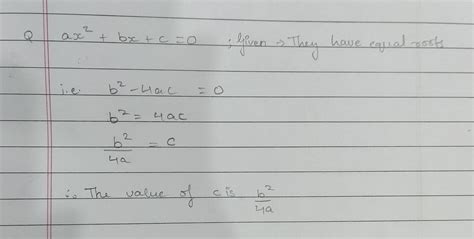 Q ax² + bx + c = 0 ; Given → They have equal roots
i.e. b² - 4ac = 0
b² = 4ac
b²/4a = c
∴ The value of c is b²/4a